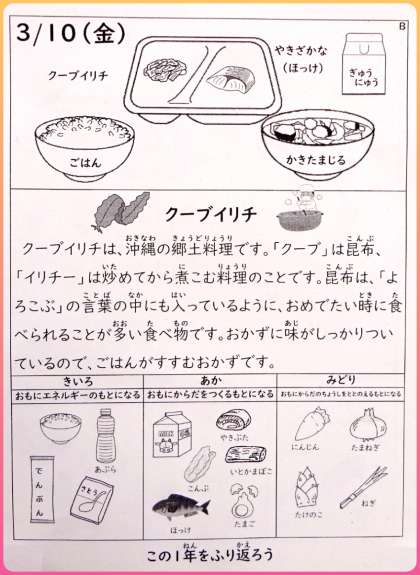 3/10(金)
B
クーブイリチ
やきざかな
(ほっけ)
ぎゅう
にゅう
ごはん
かきたまじる
クーブイリチ
クーブイリチは、沖縄の郷土料理です。「クーブ」は昆布、
「イリチー」は炒めてから煮こむ料理のことです。昆布は、「よ
ろこぶ」の言葉の中にも入っているように、おめでたい時に食
べられることが多い食べ物です。おかずに味がしっかりつい
ているので、ごはんがすすむおかずです。
きいろ
おもにエネルギーのもとになる
あぶら
でんぷん
さとう
あか
おもにからだをつくるもとになる
やきぶた
いとかまぼこ
こんぶ
ほっけ
たまご
みどり
おもにからだのちょうしをととのえるもとになる
にんじん
たまねぎ
たけのこ
ねぎ
この1年をふり返ろう